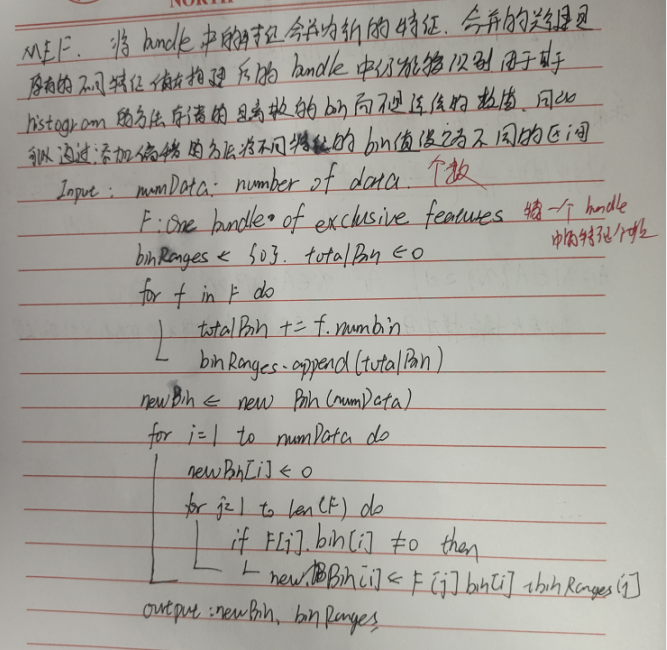 NORTH
MEF. 将 bundle 中的特征合并为新的特征. 合并的关键是
原有的不同特征值在构建后的 bundle 中仍能够识别 由于基于
histogram 的方法存储的是离散的 bin 而不是连续的数值. 因此
可以通过添加偏移的方法将不同特征的 bin 值设定为不同的区间
Input: numData: number of data. 个数
F: One bundle of exclusive features 特一个 bundle
中的特征个数
binRanges ← {0}. totalBin ← 0
for f in F do
totalBin += f.numbin
binRanges.append(totalBin)
newBin ← new Bin(numData)
for i=1 to numData do
newBin[i] ← 0
for j=1 to len(F) do
if F[j].bin[i] ≠0 then
newBin[i] ← F[j]bin[i] +binRanges[j]
output: newBin, binRanges